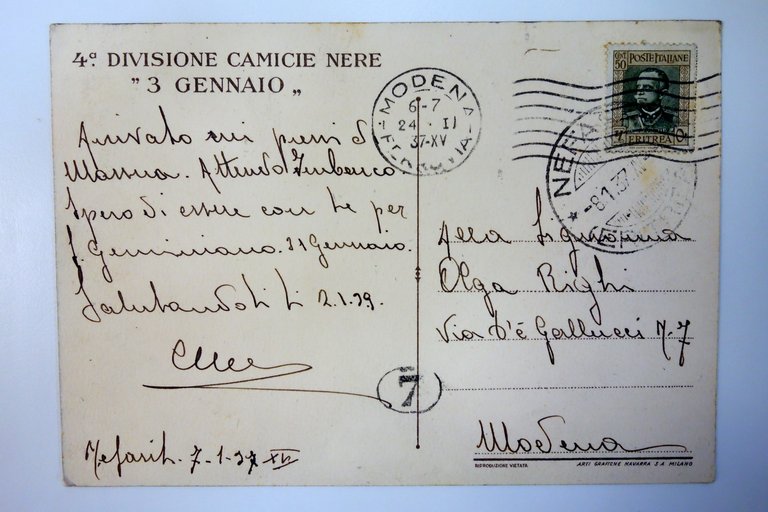 4ª DIVISIONE CAMICIE NERE
" 3 GENNAIO "
Arrivato nei pressi di
Massaua. Attendo Imbarco
Spero di essere con te per
S. Geminiano. 31 Gennaio.
Salutandoti 2.1.39.
Nefasit. 7-1-37 XV
7
MODENA
6-7
24 · II
37-XV
FERROVIA
CENT 50
POSTE ITALIANE
ERITREA
NEFA
-8.1.37
ERITREA
Alla Signorina
Olga Righi
Via de' Gallucci N. 7
Modena
RIPRODUZIONE VIETATA
ARTI GRAFICHE NAVARRA S A MILANO